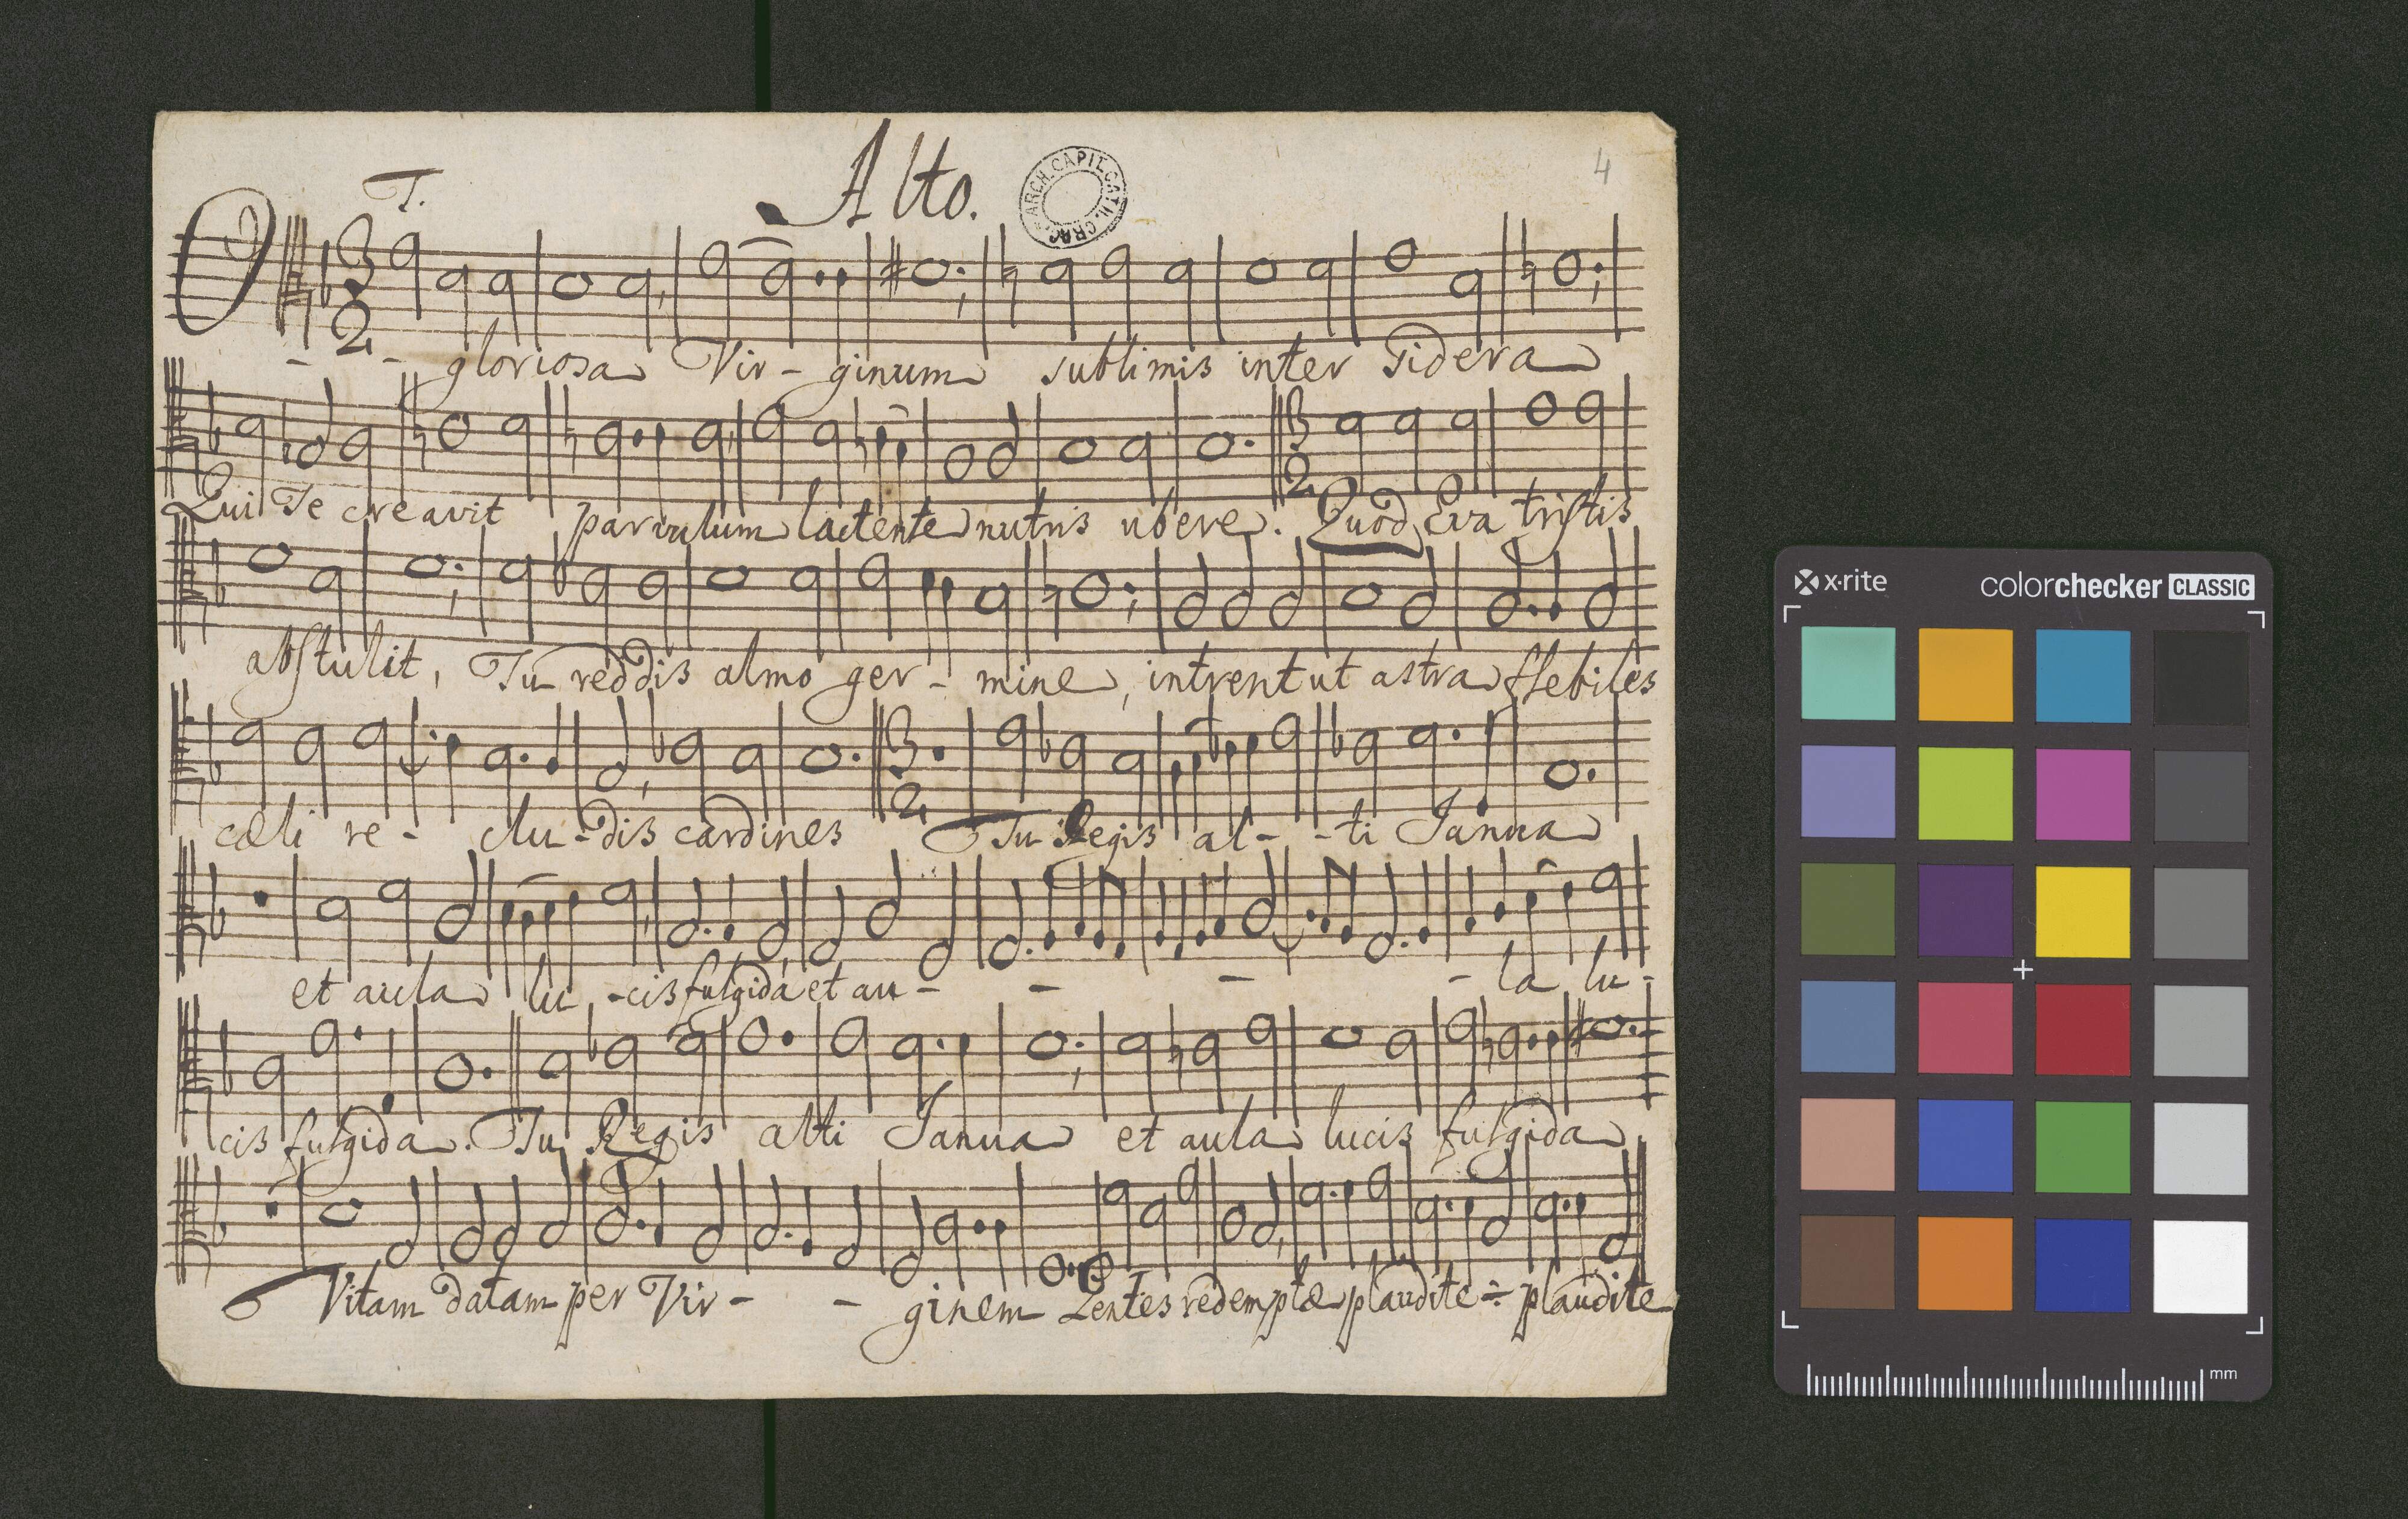 Alto.
ARCH. CAPIT. CATH. CRAC.
4
T.
3
2
O - - gloriosa Vir - ginum sublimis inter Sidera
3
2
Qui Te creavit parvulum lactente nutris ubere. Quod Eva tristis
abstulit, Tu reddis almo ger - mine, intrent ut astra flebiles
3
2
cæli re - clu - dis cardines Tu Regis al - - ti Janua
et aula lu - cis fulgida et au - - - - la lu -
cis fulgida. Tu Regis alti Janua et aula lucis fulgida
Vitam datam per Vir - - ginem Gentes redemptæ plaudite ÷ plaudite
x·rite
colorchecker CLASSIC
mm